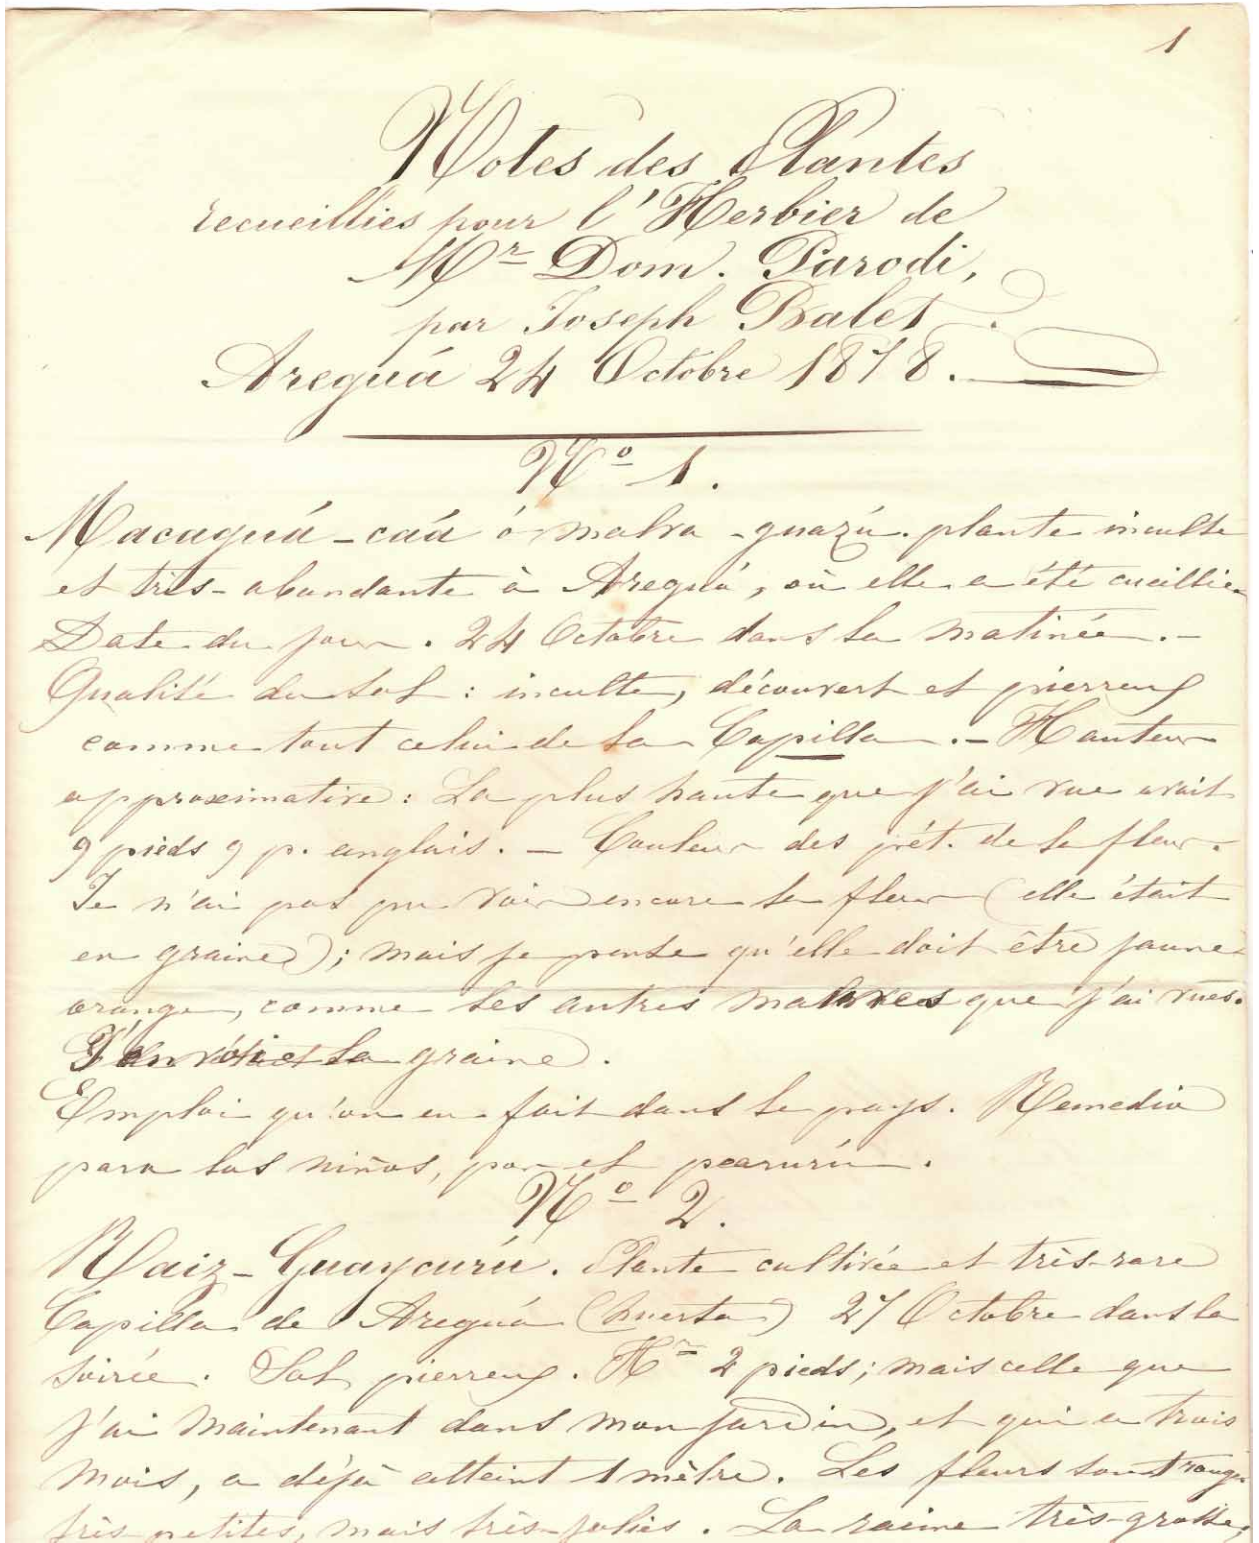 1
Notes des Plantes
recueillies pour l'Herbier de
Mr Dom. Parodi,
par Joseph Balet.
Areguá 24 Octobre 1878.
No 1.
Macaguá-caá ó malva-guazú. plante inculte
et très-abondante à Areguá, où elle a été cueillie
Date du jour. 24 Octobre dans la matinée.-
Qualité du sol: inculte, découvert et pierreux
comme tout celui de la Capilla.- Hauteur
approximative: La plus haute que j'ai vue avait
9 pieds 9 p. anglais. - Couleur des pét. de la fleur.
Je n'ai pas pu voir encore la fleur (elle était
en graine); mais je pense qu'elle doit être jaune
orange, comme les autres malves que j'ai vues.
la graine.
Emploi qu'on en fait dans le pays. Remedio
para los niños, por el pearurú.
No 2.
Raiz-Guaycurú. Plante cultivée et très-rare
Capilla de Areguá (huerta) 27 Octobre dans la
soirée. Sol pierreux. Hr 2 pieds; mais celle que
j'ai maintenant dans mon jardin, et qui a trois
mois, a déjà atteint 1 mètre. Les fleurs sont rouges
très-petites, mais très-jolies. La racine très-grosse,